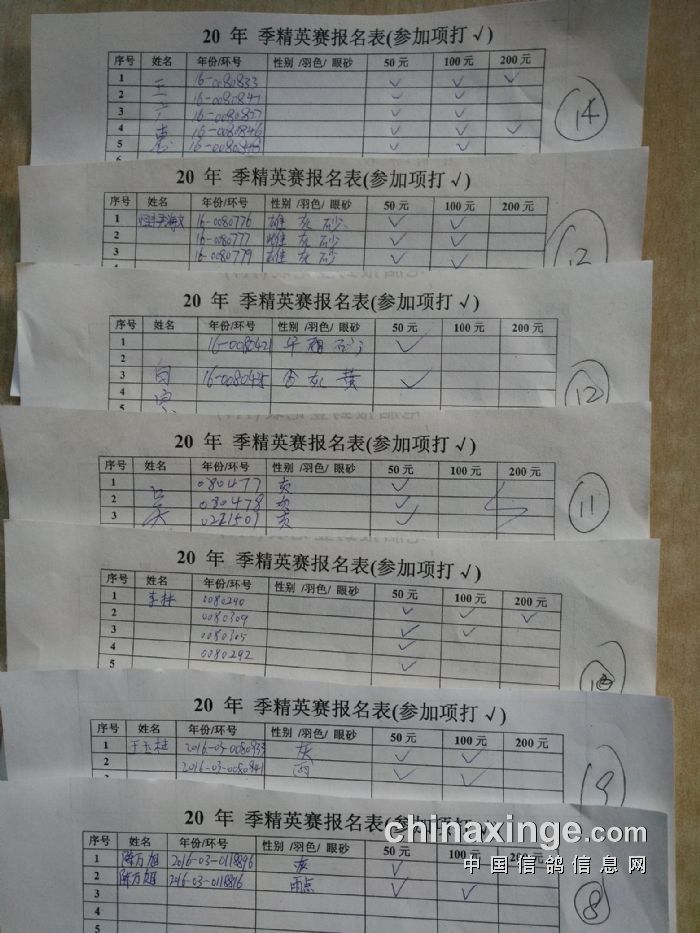 20 年 季精英赛报名表(参加项打 √)
序号 姓名 年份/环号 性别 /羽色/ 眼砂 50 元 100 元 200 元
1 王 16-0080833 √ √ √
2 16-0080841 √ √
3 广 16-0080857 √ √
4 惠 16-0080846 √ √ √
5 16-0080848 √ √
6
14
20 年 季精英赛报名表(参加项打 √)
序号 姓名 年份/环号 性别 /羽色/ 眼砂 50 元 100 元 200 元
1 16-0080776 雄 灰 砂 √ √
2 16-0080777 雌 灰 砂 √ √
3 16-0080779 雄 灰 砂 √ √
4
20 年 季精英赛报名表(参加项打 √)
序号 姓名 年份/环号 性别 /羽色/ 眼砂 50 元 100 元 200 元
1 16-0080421 砂 √
2
3 白 灰 黄 √
4
5
12
20 年 季精英赛报名表(参加项打 √)
序号 姓名 年份/环号 性别 /羽色/ 眼砂 50 元 100 元 200 元
1 080477 √
2 吴 080478 √
3 0221501 √
11
20 年 季精英赛报名表(参加项打 √)
序号 姓名 年份/环号 性别 /羽色/ 眼砂 50 元 100 元 200 元
1 李林 0080240 √ √ √
2 0080309 √ √
3 0080305 √
4 0080292 √
5
20 年 季精英赛报名表(参加项打 √)
序号 姓名 年份/环号 性别 /羽色/ 眼砂 50 元 100 元 200 元
1 王玉柱 2016-03-0080933 灰 √ √
2 2016-03-0080941 雨 √ √
3
4
20 年 季精英赛报名表(参加项打 √)
序号 姓名 年份/环号 性别 /羽色/ 眼砂 50 元 100 元 200 元
1 陈万旭 2016-03-0118896 灰 √ √
2 陈万旭 2016-03-0118816 雨点 √ √
3
4
5
8
chinaxinge.com
中国信鸽信息网